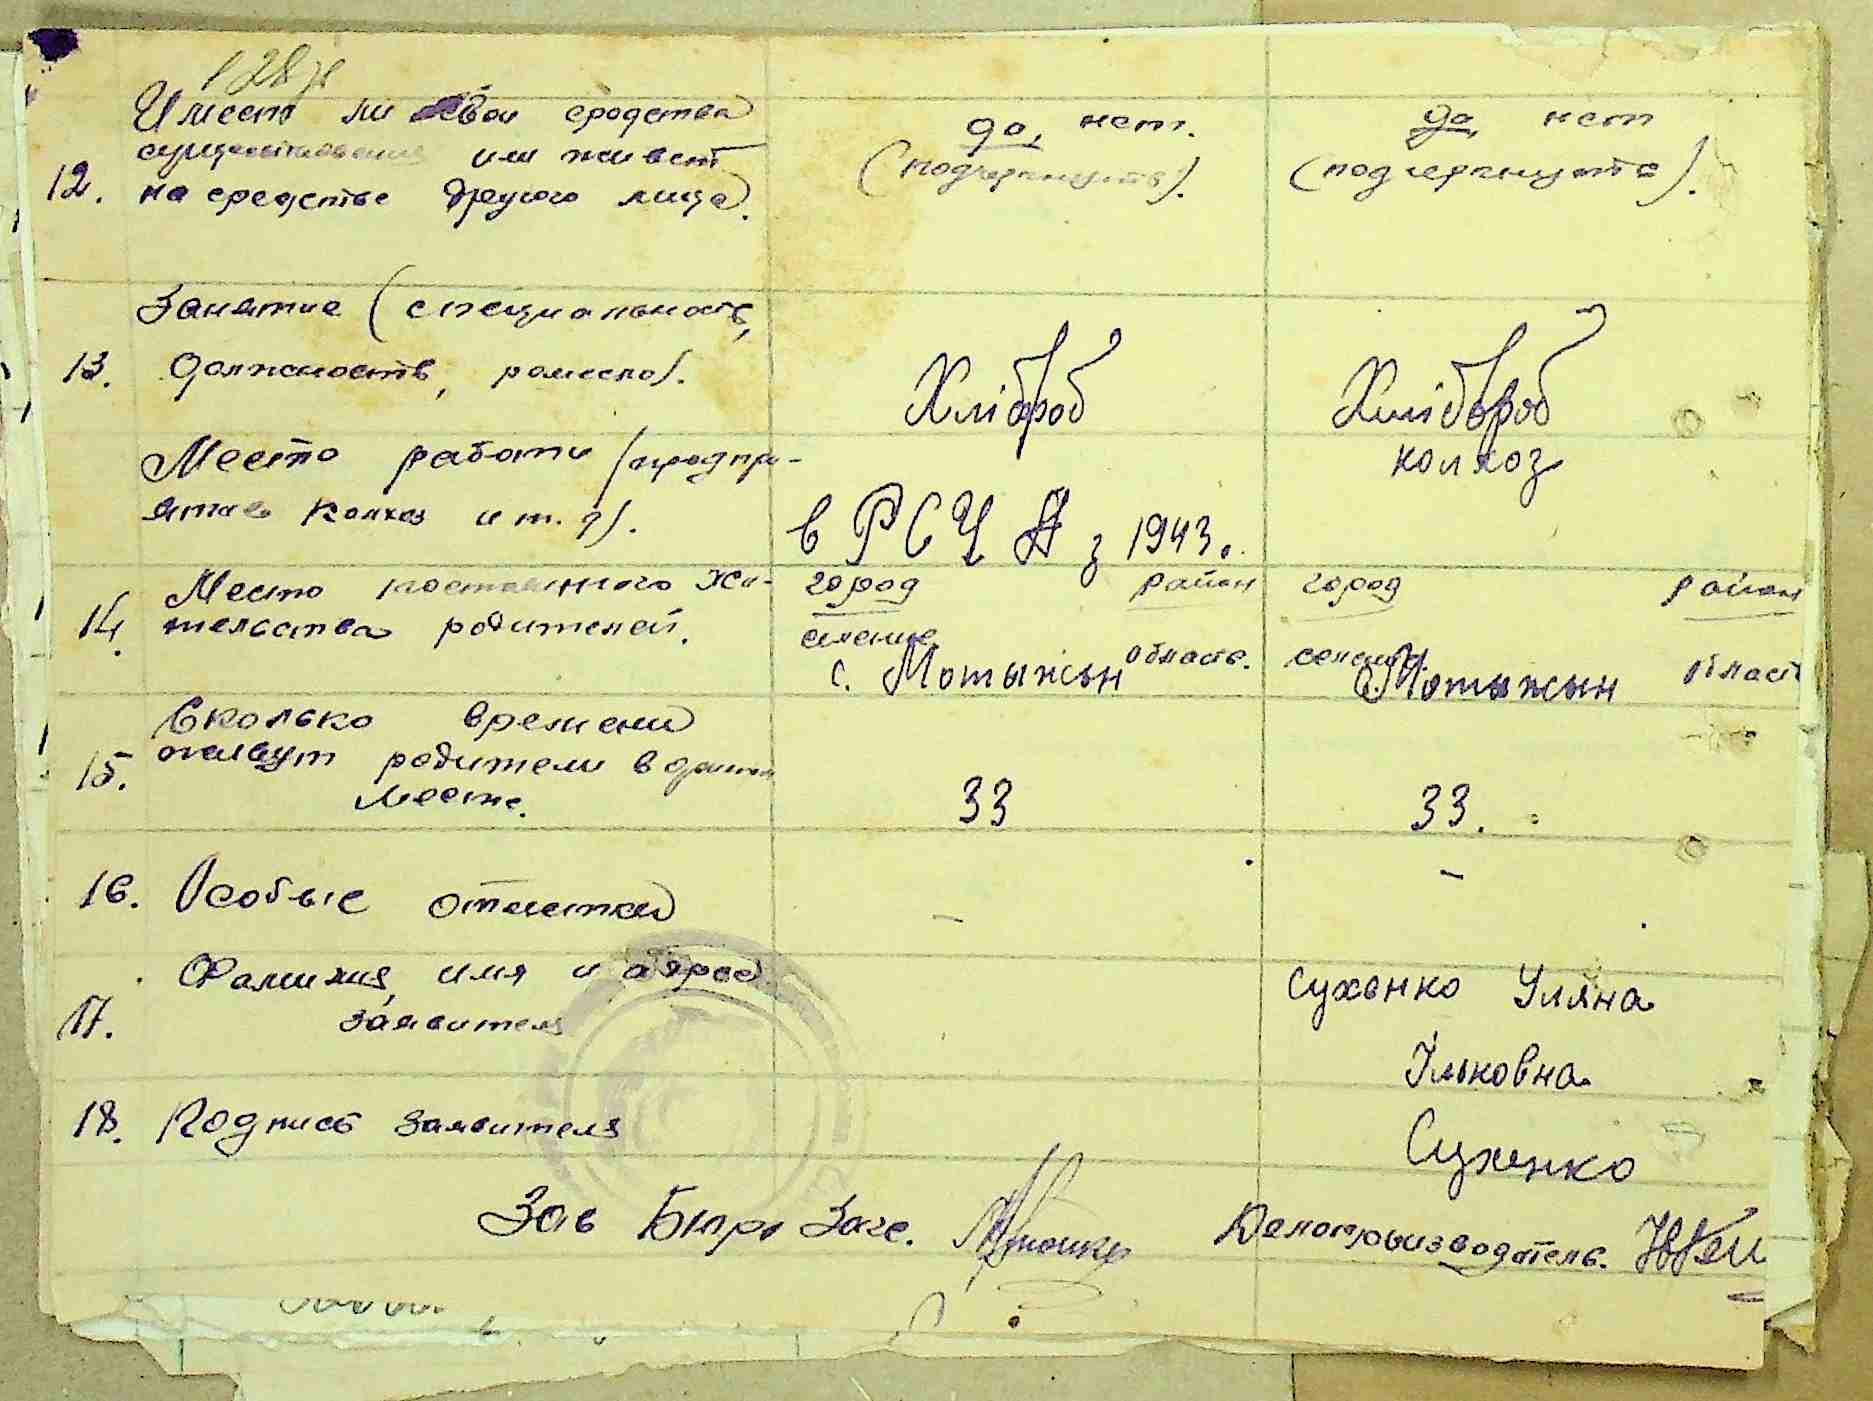 128
Имеет ли свои средства
да, нет.
да, нет
существования или живет
(подчеркнуть).
(подчеркнуть).
12. на средстве другого лица.
Занятие (специальность,
13. должность, ремесло).
Хлібороб
Хлібороб
Место работи (предпри-
колхоз
ятие колхоз и т. д).
в РСЧА з 1943.
Место постоянного жи-
город район
город район
14. тельства родителей.
селение область.
селение область
с. Мотыжын
с. Мотыжын
Сколько времени
15. живут родители в данном
месте.
33
33.
16. Особые отметки
-
-
Фамилия, имя и
Сухенко Уляна
17. заявителя
Ільковна
18. Подпись заявителя
Сухенко
Зав Бюро Загс.
Делопрыизводатель.